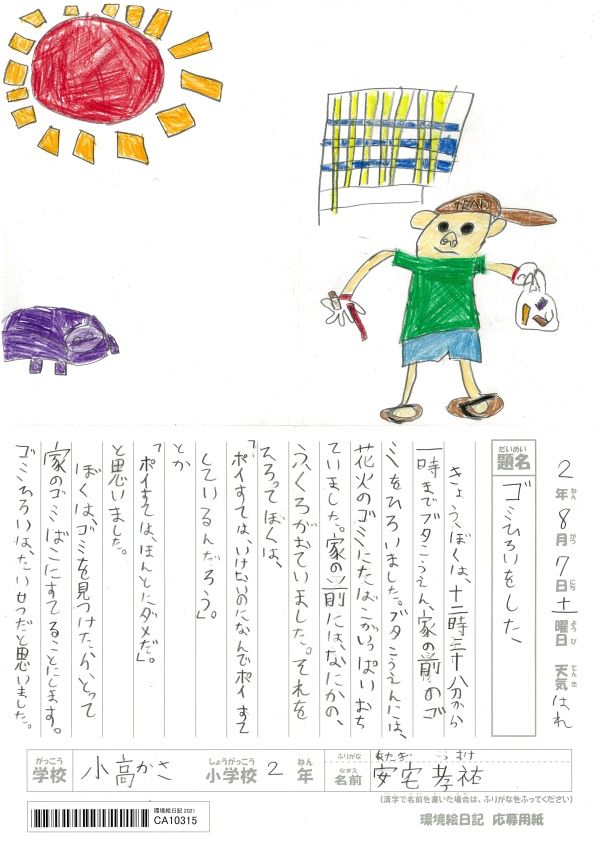 2年8月7日土曜日 天気 はれ
ねん がつ にち ようび てんき
だいめい
題名 ゴミひろいをした
きょう、ぼくは、十二時三十八分から
一時までブタこうえん、家の前のゴ
ミをひろいました。ブタこうえんには、
花火のゴミにたばこがいっぱいおち
ていました。家の前には、なにかの、
ふくろがおちていました。それを
ひろってぼくは、
「ポイすては、いけないのになんでポイすて
しているんだろう。」
とか
「ポイすては、ほんとにダメだ。」
と思いました。
ぼくは、ゴミを見つけたら、とって
家のゴミばこにすてることにします。
ゴミひろいは、たいせつだと思いました。
がっこう しょうがっこう ねん ふりがな
学校 小高 小学校 2 年 なまえ 名前 安宅 孝祐
(漢字で名前を書いた場合は、ふりがなをふってください)
環境絵日記 2021
CA10315
環境絵日記 応募用紙